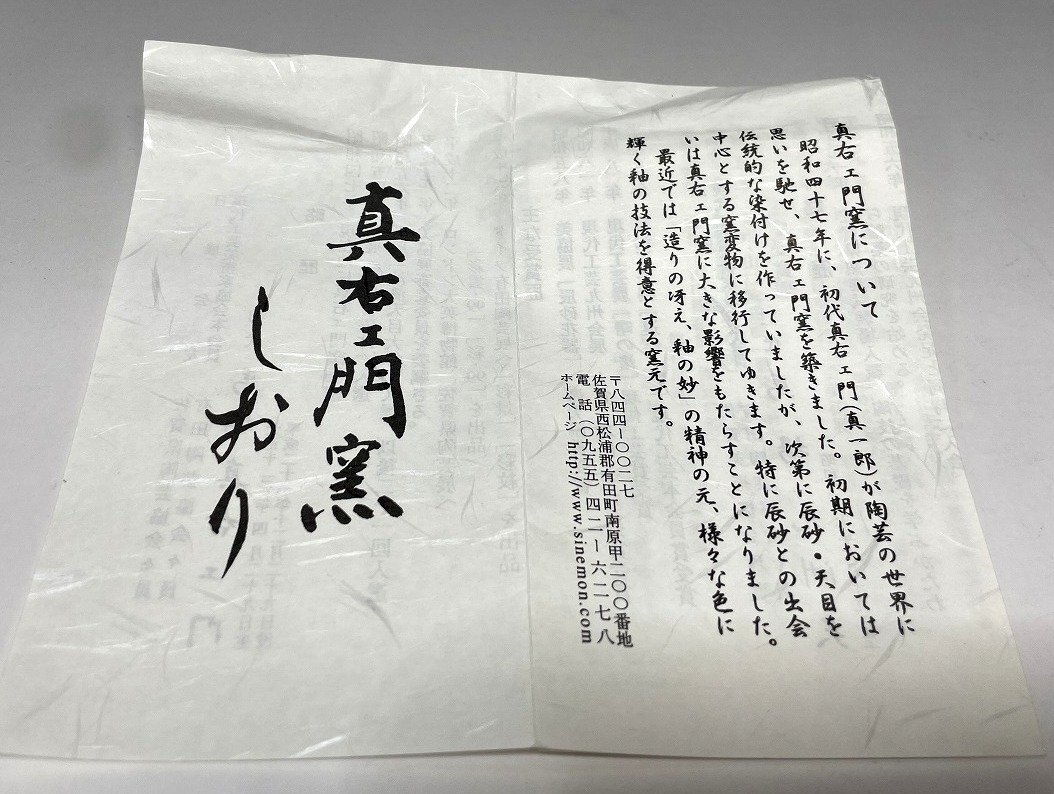 真右エ門窯について
昭和四十七年に、初代真右エ門(真一郎)が陶芸の世界に
思いを馳せ、真右エ門窯を築きました。初期においては
伝統的な染付けを作っていましたが、次第に辰砂・天目を
中心とする窯変物に移行してゆきます。特に辰砂との出会
いは真右エ門窯に大きな影響をもたらすことになりました。
最近では「造りの冴え、釉の妙」の精神の元、様々な色に
輝く釉の技法を得意とする窯元です。
〒八四四-〇〇二七
佐賀県西松浦郡有田町南原甲二〇〇番地
電話(〇九五五)四二-六二七八
ホームページ http://www.sinemon.com
真右エ門窯
しおり